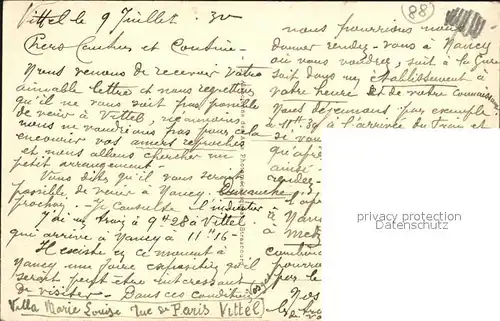 Vittel le 9 Juillet 30
Chers Cousins et Cousine
Nous venons de recevoir votre
aimable lettre et nous regrettons
qu'il ne vous soit pas possible
de venir à Vittel, néanmoins
nous ne voudrions pas pour cela
encourir vos amers reproches
et nous allons chercher un
petit arrangement.
Vous dites qu'il vous serait
possible de venir à Nancy Dimanche
prochain. Je consulte l'indicateur
J'ai un train à 9h28 à Vittel
qui arrive à Nancy à 11h16.
Il existe en ce moment à
Nancy une foire exposition qu'il
serait peut être intéressant
de visiter. Dans ces conditions
Villa Marie Louise rue de Paris Vittel
Vosges
nous pourrions nous
donner rendez-vous à Nancy
où vous voudrez, soit à la Gare
soit dans un établissement à
votre heure et de votre connaissance
Nous déjeunons par exemple
à 11h30 à l'arrivée du train et
si vous
qu'après
ainsi
rendez
à
Nancy
à
combien
pourra
par le
88
privacy protection
Datenschutz